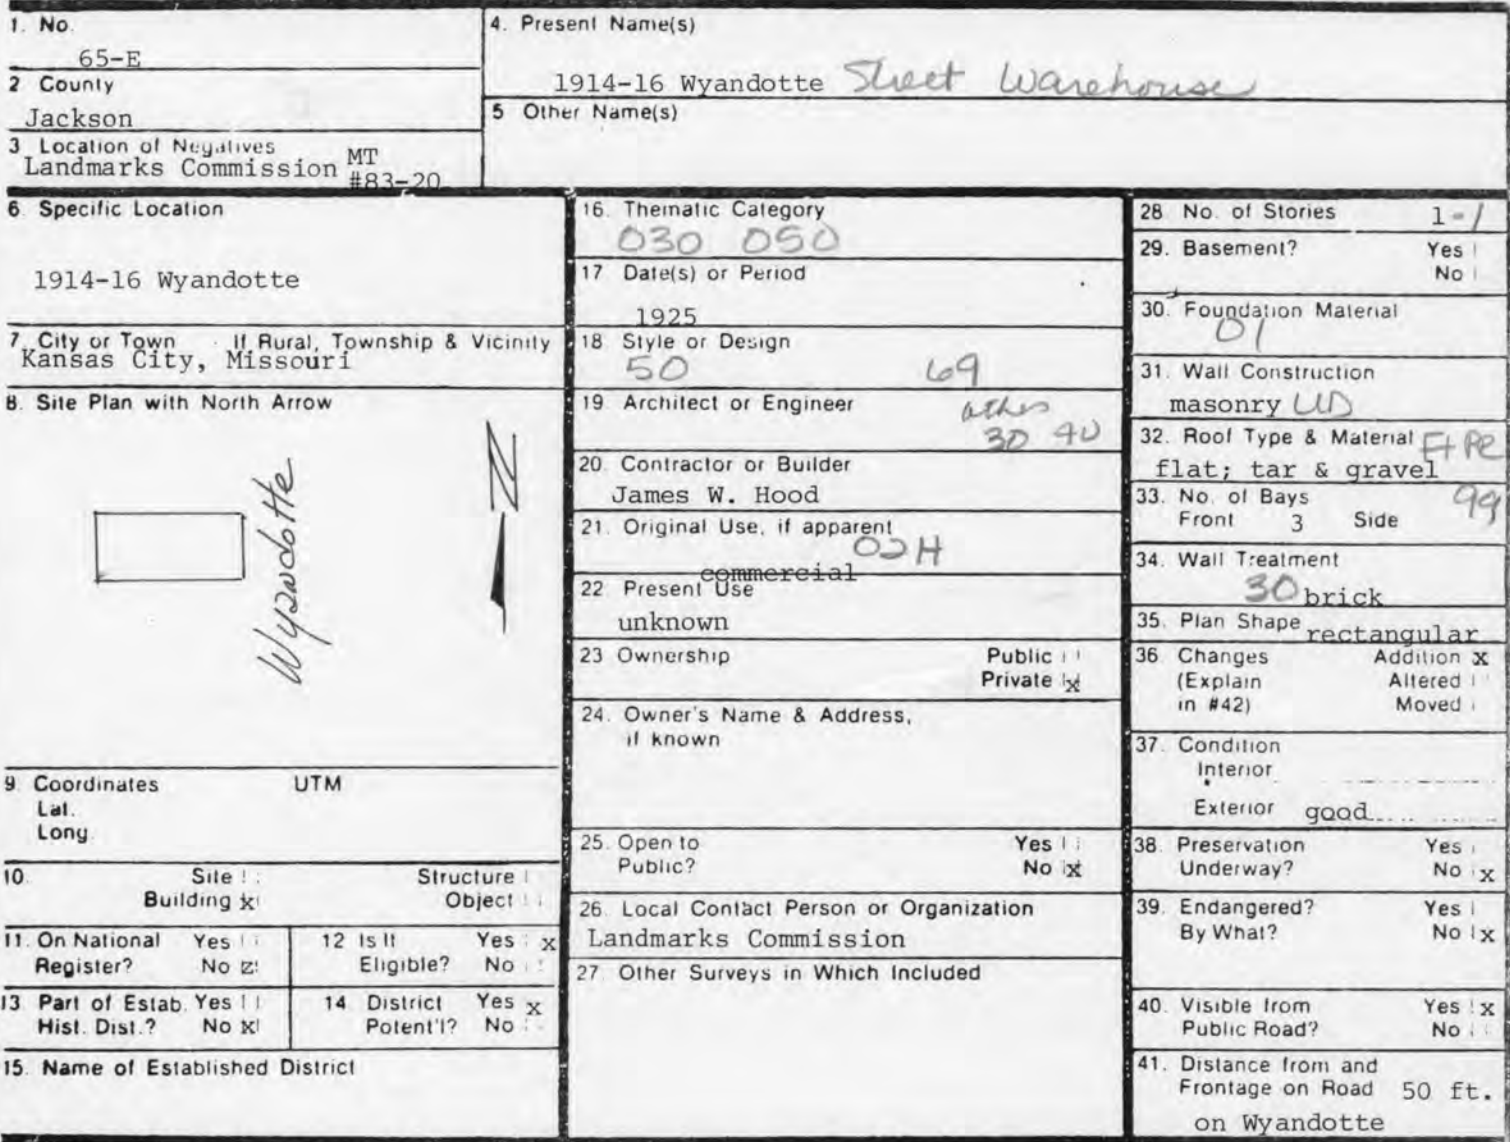 1. No.
65-E
2 County
Jackson
3 Location of Negatives MT
Landmarks Commission #83-20
4. Present Name(s)
1914-16 Wyandotte Street Warehouse
5 Other Name(s)
6. Specific Location
1914-16 Wyandotte
7. City or Town If Rural, Township & Vicinity
Kansas City, Missouri
8. Site Plan with North Arrow
Wyandotte
N
9. Coordinates UTM
Lat.
Long.
10. Site Structure
Building x Object
11. On National Yes
Register? No x
12 Is It Yes x
Eligible? No
13 Part of Estab. Yes
Hist. Dist.? No x
14 District Yes x
Potent'l? No
15. Name of Established District
16. Thematic Category
030 050
17 Date(s) or Period
1925
18 Style or Design
50 69
19 Architect or Engineer other
30 40
20. Contractor or Builder
James W. Hood
21. Original Use, if apparent
02H
commercial
22 Present Use
unknown
23 Ownership Public
Private x
24. Owner's Name & Address,
if known
25. Open to Yes
Public? No x
26. Local Contact Person or Organization
Landmarks Commission
27. Other Surveys in Which Included
28 No. of Stories 1-1
29. Basement? Yes
No
30. Foundation Material
01
31. Wall Construction
masonry UD
32. Roof Type & Material
flat; tar & gravel
33. No. of Bays 99
Front 3 Side
34. Wall Treatment
30 brick
35. Plan Shape rectangular
36. Changes Addition x
(Explain Altered
in #42) Moved
37. Condition
Interior
Exterior good
38. Preservation Yes
Underway? No x
39. Endangered? Yes
By What? No x
40. Visible from Yes x
Public Road? No
41. Distance from and
Frontage on Road 50 ft.
on Wyandotte